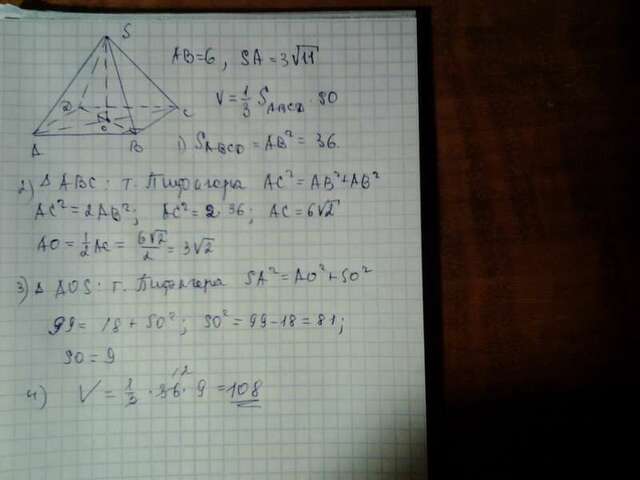 S
D
C
O
A
B
AB=6, SA=3√11
V=1/3 S_ABCD · SO
1) S_ABCD = AB² = 36.
2) Δ ABC: т. Пифагора AC²=AB²+AB²
AC²=2AB²; AC²=2·36; AC=6√2
AO=1/2 AC = 6√2/2 = 3√2
3) Δ AOS: т. Пифагора SA²=AO²+SO²
99=18+SO²; SO²=99-18=81;
SO=9
4) V=1/3 · 36 · 9 = 108
12